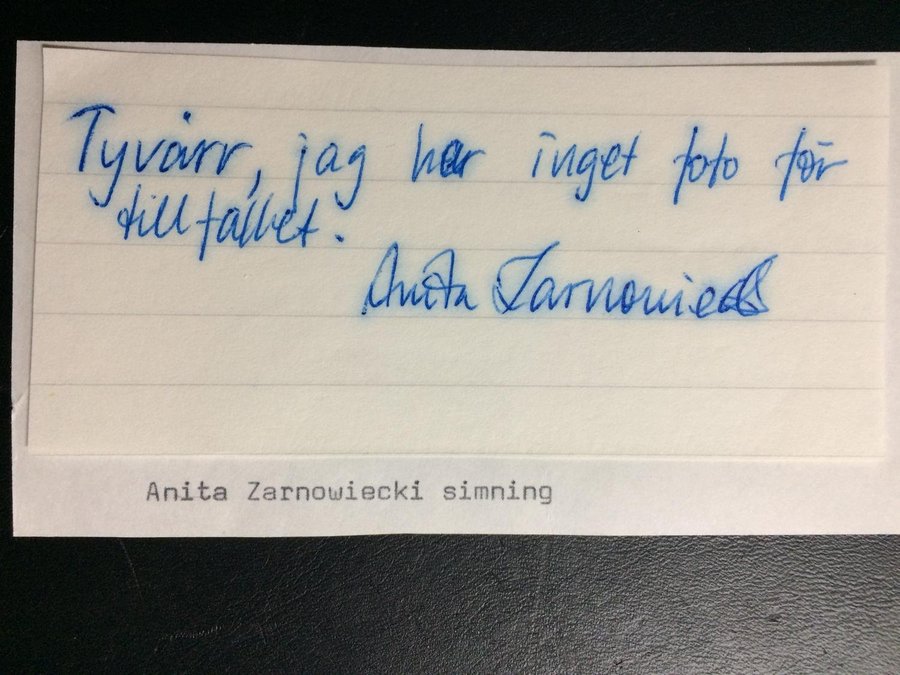 Tyvärr, jag har inget foto för
tillfället.
Anita Zarnowiecki
Anita Zarnowiecki simning